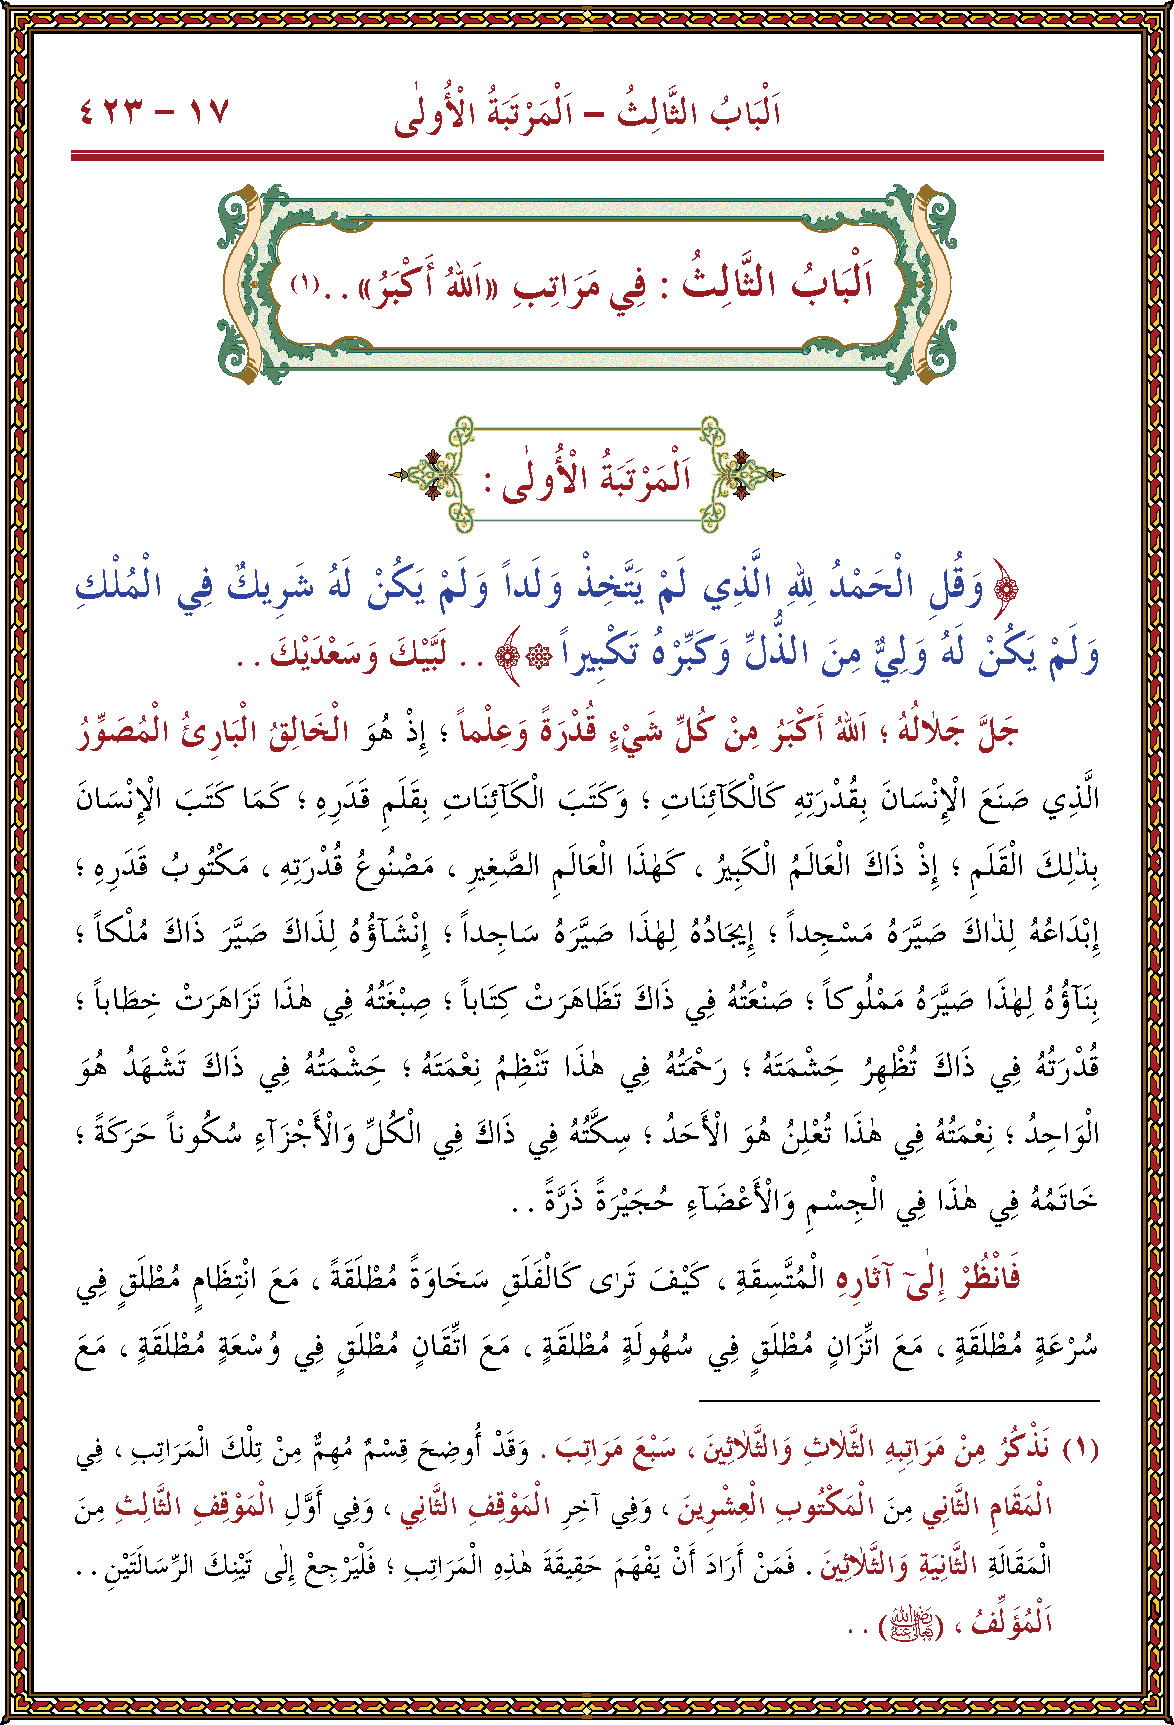 اَلْبَابُ الثَّالِثُ – اَلْمَرْتَبَةُ الْأُولٰى ١٧ – ٤٢٣
اَلْبَابُ الثَّالِثُ : فِي مَرَاتِبِ «اَللّٰهُ أَكْبَرُ» . . (١)
اَلْمَرْتَبَةُ الْأُولٰى :
﴿وَقُلِ الْحَمْدُ لِلّٰهِ الَّذِي لَمْ يَتَّخِذْ وَلَداً وَلَمْ يَكُنْ لَهُ شَرِيكٌ فِي الْمُلْكِ
وَلَمْ يَكُنْ لَهُ وَلِيٌّ مِنَ الذُّلِّ وَكَبِّرْهُ تَكْبِيراً ۞﴾ . . لَبَّيْكَ وَسَعْدَيْكَ . .
جَلَّ جَلَالُهُ ؛ اَللّٰهُ أَكْبَرُ مِنْ كُلِّ شَيْءٍ قُدْرَةً وَعِلْماً ؛ إِذْ هُوَ الْخَالِقُ الْبَارِئُ الْمُصَوِّرُ
الَّذِي صَنَعَ الْإِنْسَانَ بِقُدْرَتِهِ كَالْكَآئِنَاتِ ؛ وَكَتَبَ الْكَآئِنَاتِ بِقَلَمِ قَدَرِهِ ؛ كَمَا كَتَبَ الْإِنْسَانَ
بِذٰلِكَ الْقَلَمِ ؛ إِذْ ذَاكَ الْعَالَمُ الْكَبِيرُ ، كَهٰذَا الْعَالَمِ الصَّغِيرِ ، مَصْنُوعُ قُدْرَتِهِ ، مَكْتُوبُ قَدَرِهِ ؛
إِبْدَاعُهُ لِذٰاكَ صَيَّرَهُ مَسْجِداً ؛ إِيجَادُهُ لِهٰذَا صَيَّرَهُ سَاجِداً ؛ إِنْشَآؤُهُ لِذَاكَ صَيَّرَ ذَاكَ مُلْكاً ؛
بِنَآؤُهُ لِهٰذَا صَيَّرَهُ مَمْلُوكاً ؛ صَنْعَتُهُ فِي ذَاكَ تَظَاهَرَتْ كِتَاباً ؛ صِبْغَتُهُ فِي هٰذَا تَزَاهَرَتْ خِطَاباً ؛
قُدْرَتُهُ فِي ذَاكَ تُظْهِرُ حِشْمَتَهُ ؛ رَحْمَتُهُ فِي هٰذَا تَنْظِمُ نِعْمَتَهُ ؛ حِشْمَتُهُ فِي ذَاكَ تَشْهَدُ هُوَ
الْوَاحِدُ ؛ نِعْمَتُهُ فِي هٰذَا تُعْلِنُ هُوَ الْأَحَدُ ؛ سِكَّتُهُ فِي ذَاكَ فِي الْكُلِّ وَالْأَجْزَآءِ سُكُوناً حَرَكَةً ؛
خَاتَمُهُ فِي هٰذَا فِي الْجِسْمِ وَالْأَعْضَآءِ حُجَيْرَةً ذَرَّةً . .
فَانْظُرْ إِلٰىٓ آثَارِهِ الْمُتَّسِقَةِ ، كَيْفَ تَرٰى كَالْفَلَقِ سَخَاوَةً مُطْلَقَةً ، مَعَ انْتِظَامٍ مُطْلَقٍ فِي
سُرْعَةٍ مُطْلَقَةٍ ، مَعَ اتِّزَانٍ مُطْلَقٍ فِي سُهُولَةٍ مُطْلَقَةٍ ، مَعَ اتِّقَانٍ مُطْلَقٍ فِي وُسْعَةٍ مُطْلَقَةٍ ، مَعَ
(١) نَذْكُرُ مِنْ مَرَاتِبِهِ الثَّلَاثِ وَالثَّلَاثِينَ ، سَبْعَ مَرَاتِبَ . وَقَدْ أُوضِحَ قِسْمٌ مُهِمٌّ مِنْ تِلْكَ الْمَرَاتِبِ ، فِي
الْمَقَامِ الثَّانِي مِنَ الْمَكْتُوبِ الْعِشْرِينَ ، وَفِي آخِرِ الْمَوْقِفِ الثَّانِي ، وَفِي أَوَّلِ الْمَوْقِفِ الثَّالِثِ مِنَ
الْمَقَالَةِ الثَّانِيَةِ وَالثَّلَاثِينَ . فَمَنْ أَرَادَ أَنْ يَفْهَمَ حَقِيقَةَ هٰذِهِ الْمَرَاتِبِ ؛ فَلْيَرْجِعْ إِلٰى تَيْنِكَ الرِّسَالَتَيْنِ . .
اَلْمُؤَلِّفُ ، (رَضِيَ اللّٰهُ تَعَالٰى عَنْهُ) . .